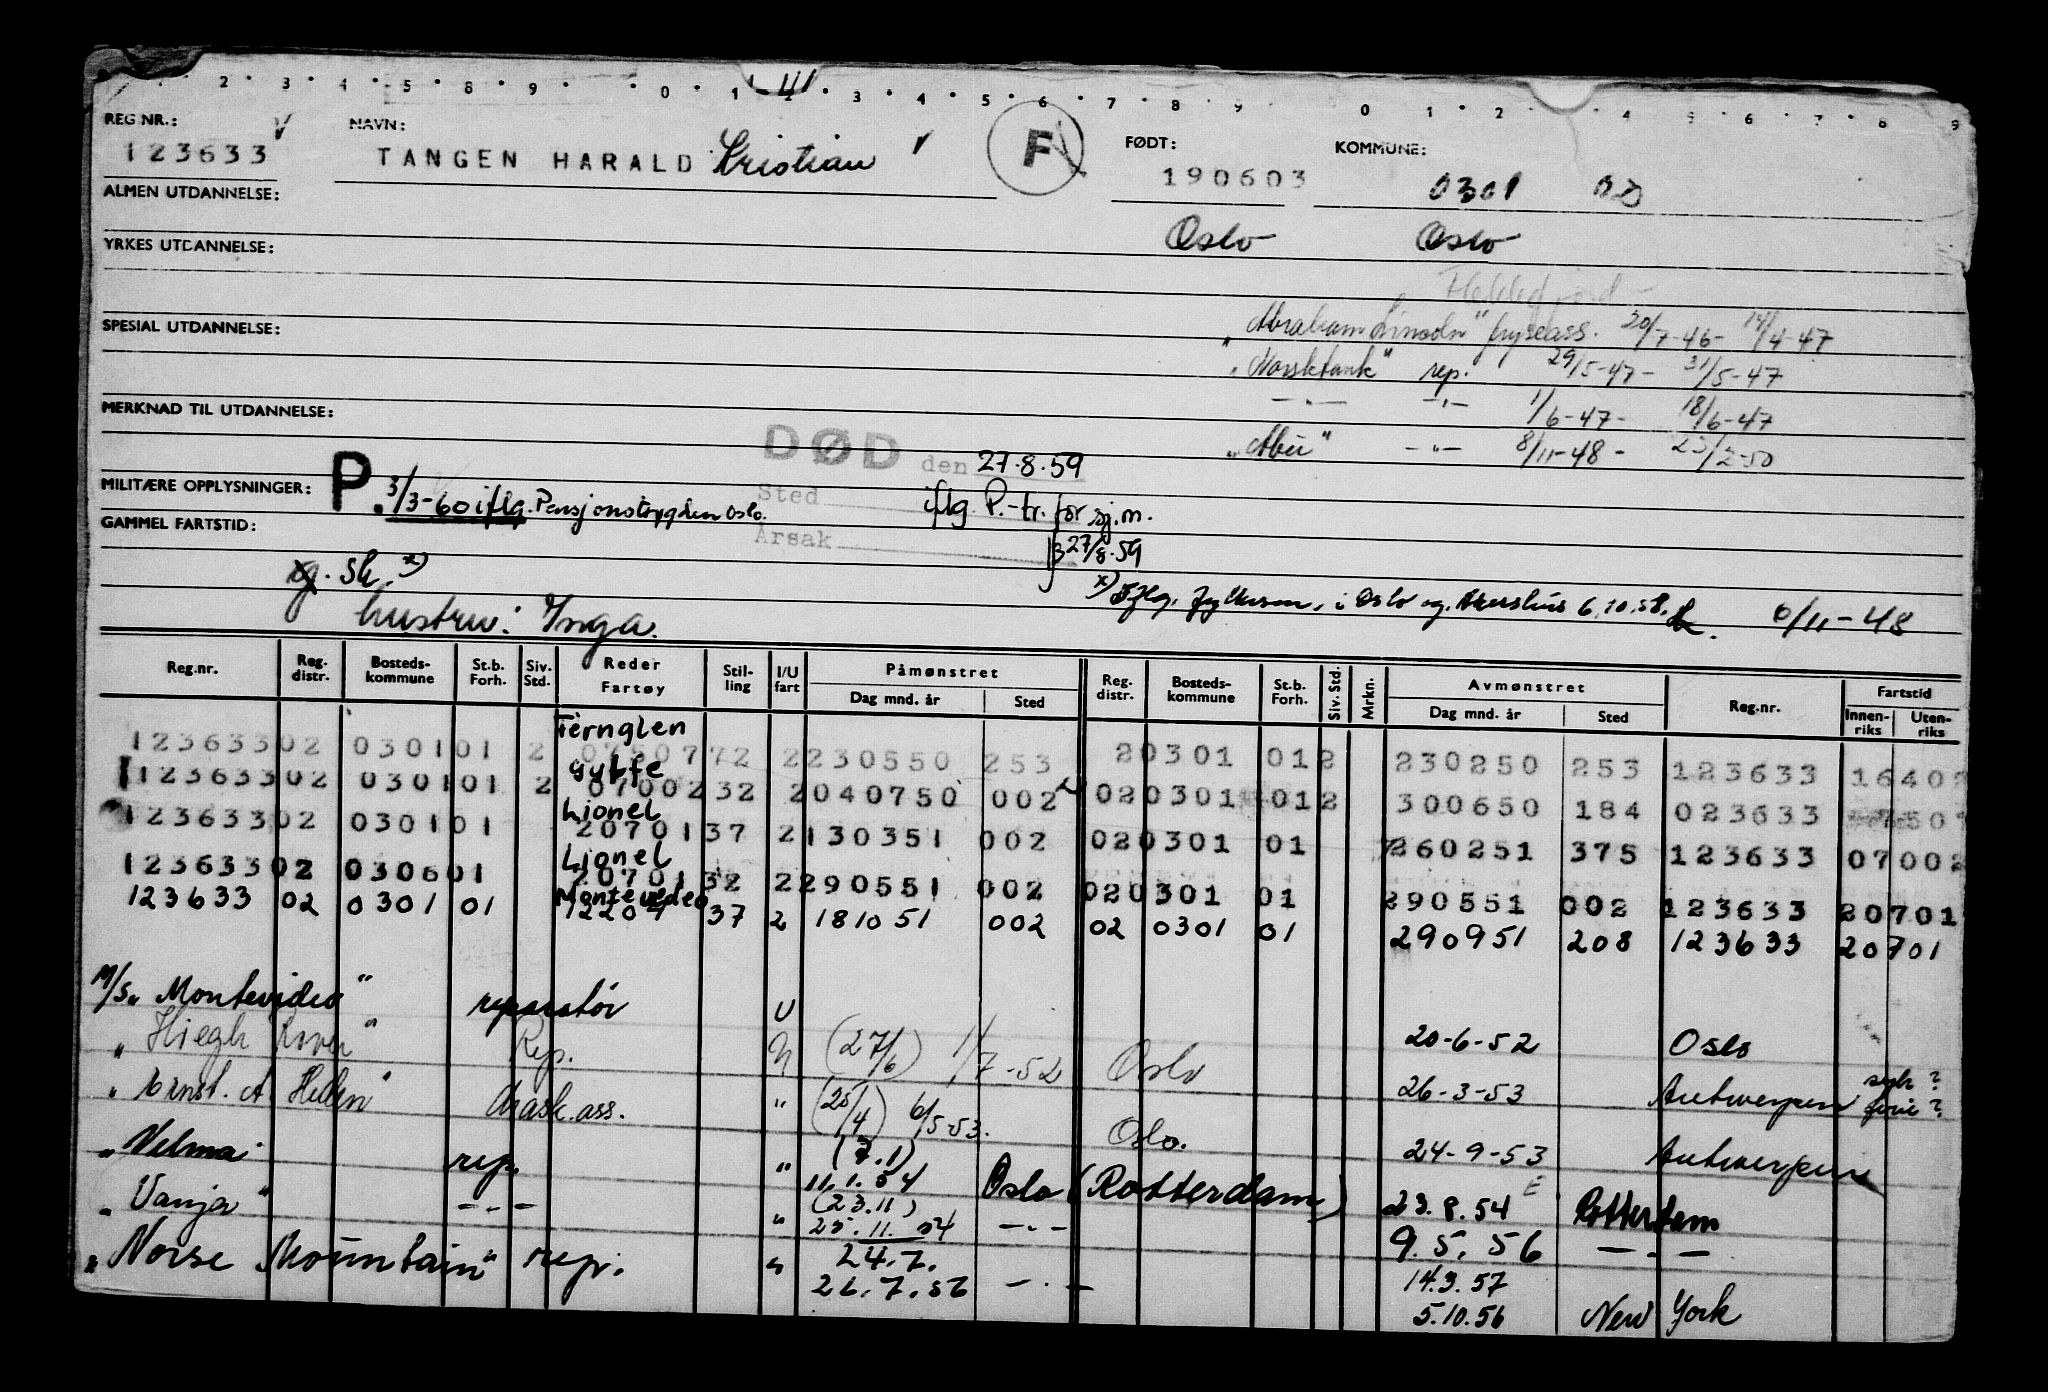 2 3 4 5 8 9 0 1 3 4 5 6 7 8 9 0 1 2 4 5 6 7 8 9
REG.NR.: NAVN: FØDT: KOMMUNE:
123633 TANGEN HARALD Kristian F 190603 0301
ALMEN UTDANNELSE:
Oslo Oslo
YRKES UTDANNELSE:
"Abraham Lincoln" fryseass. 20/7-46- 14/4-47
SPESIAL UTDANNELSE:
"Norsktank" rep. 29/5-47- 31/5-47
-"- -"- 1/6-47- 18/6-47
MERKNAD TIL UTDANNELSE:
"Abu" -"- 8/11-48- 23/2-50
DØD den 27.8.59
MILITÆRE OPPLYSNINGER: P. 3/3-60 iflg. Pensjonstrygden Oslo.
Sted iflg P.-tr. for sj.m.
GAMMEL FARTSTID:
Årsak 27/8-59
sk. x)
x) Iflg. fylkesm. i Oslo og Akershus 6.10.58. 6/11-48
hustru: Inga.
Reg.nr. Reg. distr. Bosteds-kommune St.b. Forh. Siv. Std. Reder Fartøy Stil-ling I/U fart Påmønstret Dag mnd. år Sted Reg. distr. Bosteds-kommune St.b. Forh. Siv. Std. Mrkn. Avmønstret Dag mnd. år Sted Reg.nr. Fartstid Innen-riks Uten-riks
Fernglen
123633 02 0301 01 2 72 2 230550 253 2 0301 01 2 230250 253 123633 16402
Gylfe
123633 02 0301 01 2 07002 32 2 040750 002 02 0301 01 2 300650 184 023633
Lionel
123633 02 0301 01 20701 37 2 130351 002 02 0301 01 260251 375 123633 07002
Lionel
123633 02 0306 01 20701 32 2 290551 002 02 0301 01 290551 002 123633 20701
Montevideo
123633 02 0301 01 37 2 181051 002 02 0301 01 290951 208 123633 20701
M/S "Montevideo" reparatør U 20-6-52 Oslo
" Rep. U (27/6) 1/7-52 Oslo 26-3-53 Antwerpen
" Ernst. A. " Mask.ass. " 6/5-53. Oslo. 24-9-53 Antwerpen
"Velma" rep. " (7.1) 11.1.54 Oslo (Rotterdam) 23.8.54 Rotterdam
"Vanja" -"- " (23.11) 25.11.54 -"- 9.5.56 -"-
"Norse Mountain" rep. " 24.7. 26.7.56 -"- 14.3.57
5.10.56 New York